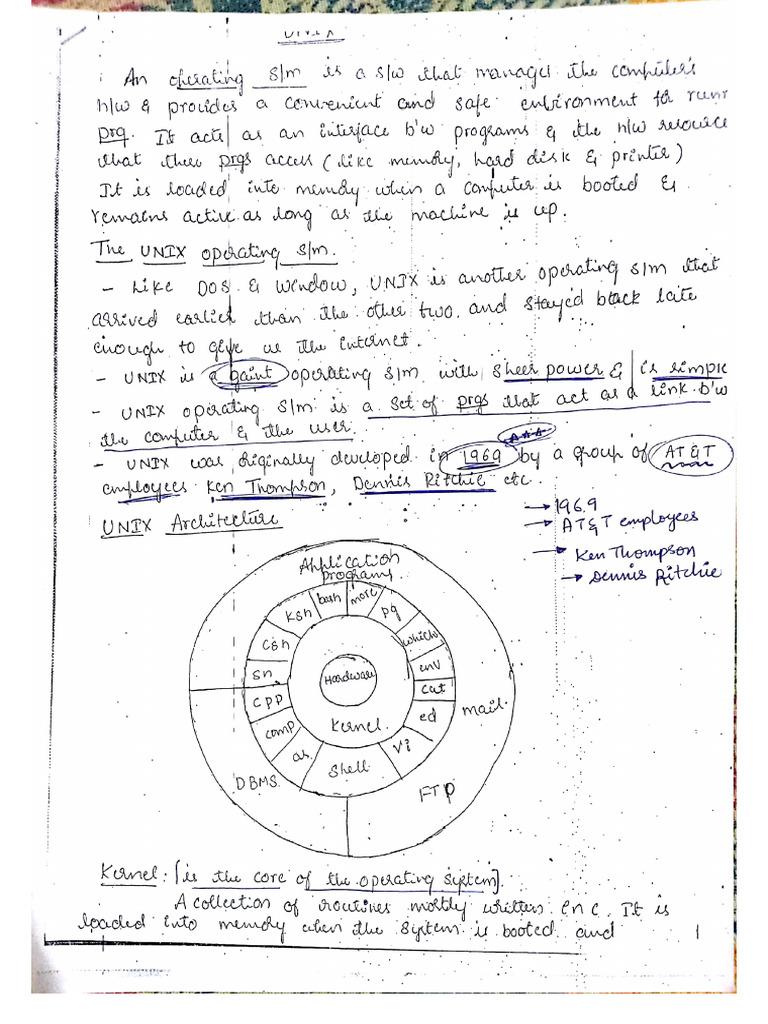 UNIX
An operating s/m is a s/w that manages the computer's
h/w & provides a convenient and safe environment for runn
prg. It acts as an interface b'w programs & the h/w resource
that these prgs access (like memory, hard disk & printer)
It is loaded into memory when a computer is booted &
remains active as long as the machine is up.
The UNIX operating s/m.
- Like DOS & window, UNIX is another operating s/m that
arrived earlier than the other two and stayed back late
enough to give us the internet.
- UNIX is a gaint operating s/m with sheer power & is simple
- UNIX operating s/m is a set of prgs that act as a link b'w
the computer & the user.
- UNIX was originally developed in 1969 by a group of AT&T
employees Ken Thompson, Dennis Ritchie etc.
→ 1969
→ AT&T employees
→ Ken Thompson
→ Dennis Ritchie
UNIX Architecture
Application
programs
ksh
bash
more
pg
which
env
cat
ed
vi
shell
as
comp
cpp
sn
csh
Hardware
Kernel.
mail.
FTP
DBMS
Kernel: [is the core of the operating system].
A collection of routines mostly written in c. It is
loaded into memory when the system is booted and
1